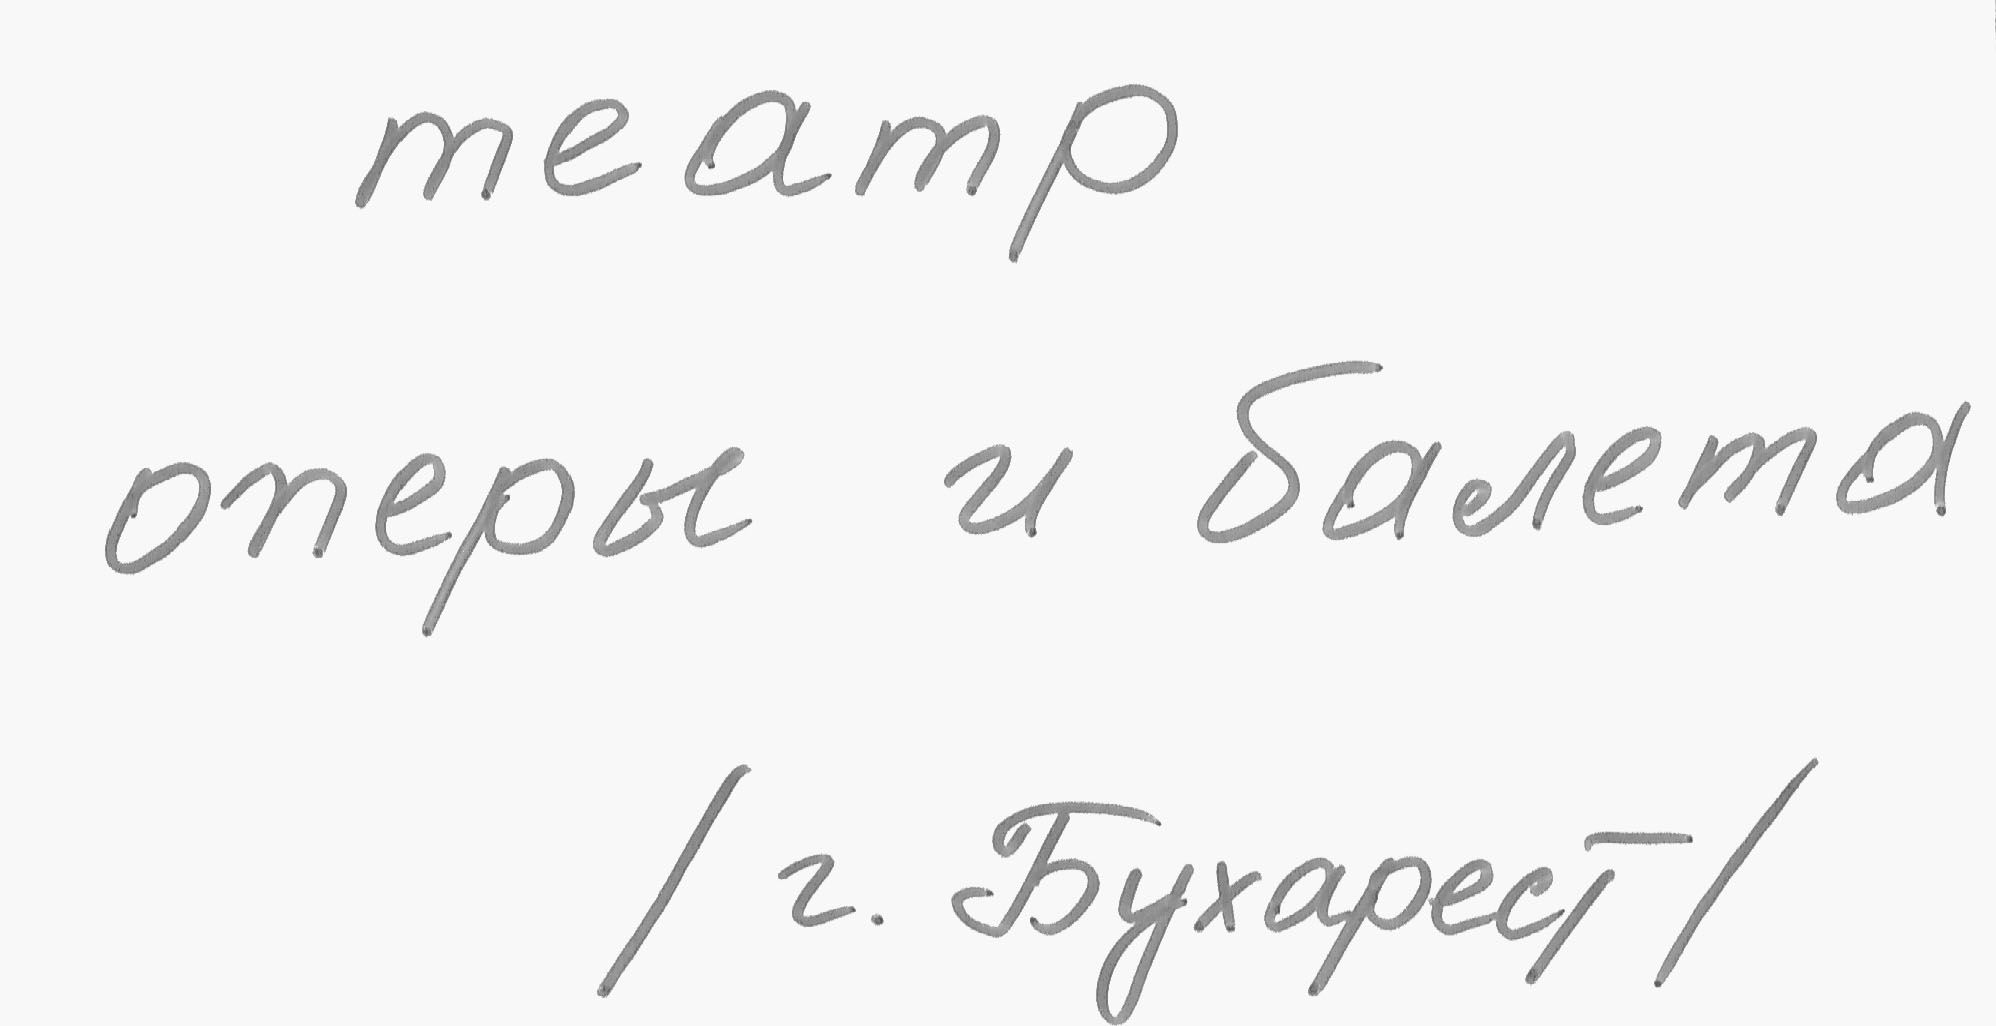 театр
оперы и балета
/г. Бухарест/